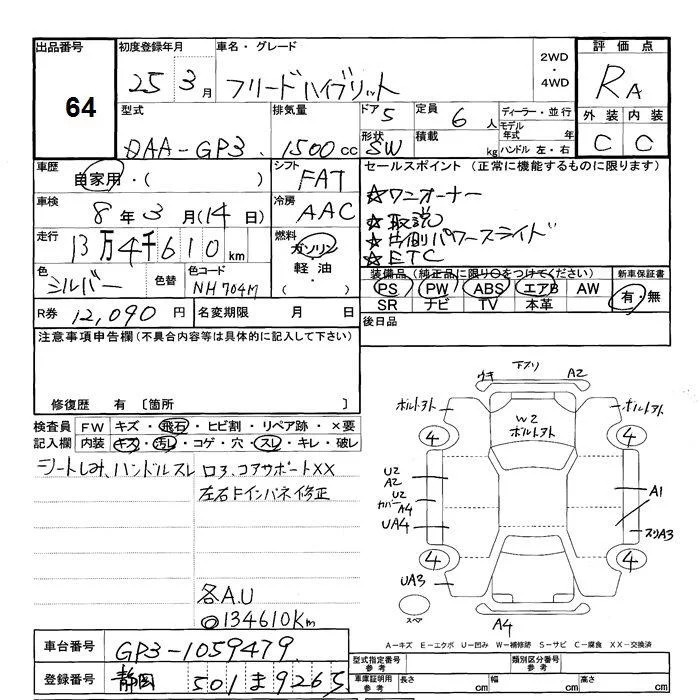 出品番号
64
初度登録年月
25 3月
車名・グレード
フリードハイブリット
2WD
・
4WD
評価点
RA
外装 内装
C C
型式
DAA-GP3
排気量
1500cc
ドア 5
形状 SW
定員 6人
積載 kg
ディーラー・並行
モデル年式 年
ハンドル 左・右
車歴
自家用・( )
シフト
FAT
車検
8年3月(14日)
冷房
AAC
走行
13万4千610km
燃料
ガソリン
・
軽油
・
( )
色
シルバー
色替
色コード
NH704M
R券 12,090円
名変期限 月 日
セールスポイント(正常に機能するものに限ります)
☆ワンオーナー
☆取説
☆片側パワースライド
☆ETC
装備品(純正品に限り○をつけてください)
PS PW ABS エアB AW
SR ナビ TV 本革
新車保証書
有・無
後日品
注意事項申告欄(不具合内容等は具体的に記入して下さい)
修復歴 有 〔箇所 〕
検査員記入欄
FW キズ・飛石・ヒビ割・リペア跡・×要
内装 キズ・汚レ・コゲ・穴・スレ・キレ・破レ
シートしみ、ハンドルスレ
ロア、コアサポートXX
左右Fインパネ修正
各A.U
◎134610Km
ウキ 下スリ A2
ボルトアト ボルトアト
W2
ボルトアト
4 4
U2
A2
U2
カバーA4
UA4
A1
スリA3
4 4
UA3
スペア
A4
A-キズ E-エクボ U-凹み W-補修跡 S-サビ C-腐食 XX-交換済
車台番号
GP3-1059479
登録番号
静岡 501 ま 9265
型式指定番号
参考
類別区分番号
参考
車庫証明用
参考
長さ cm 幅 cm 高さ cm